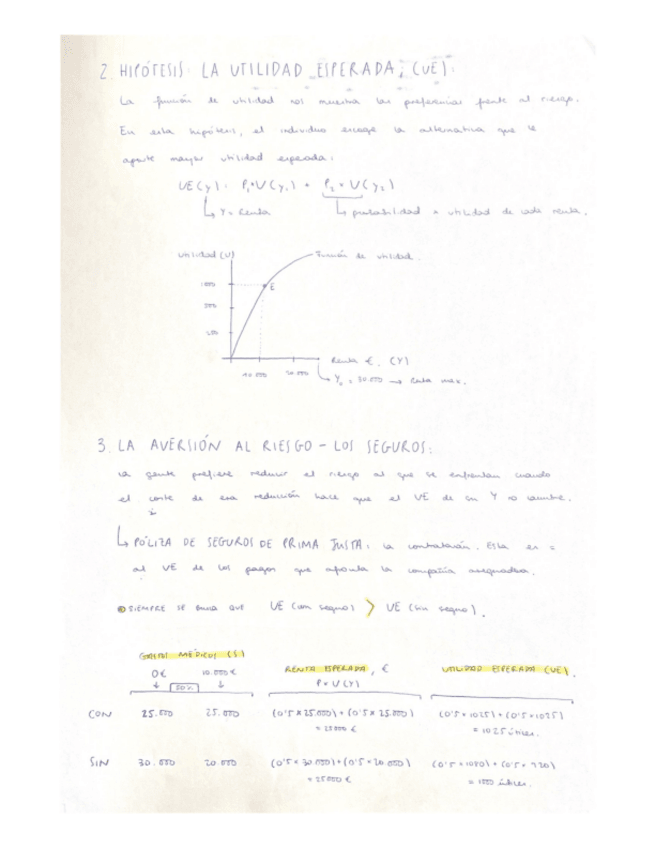 2. HIPÓTESIS: LA UTILIDAD ESPERADA, (UE).
La función de utilidad nos muestra las preferencias frente al riesgo.
En esta hipótesis, el individuo escoge la alternativa que le
aporte mayor utilidad esperada:
UE(y): P₁×U(y₁) + P₂×U(y₂)
↳ Y = Renta ↳ probabilidad × utilidad de cada renta.
Utilidad (U) Función de utilidad.
1.000 E
500
200
Renta €. (Y)
10.000 20.000 ↳ Y₀ = 30.000 → Renta max.
3. LA AVERSIÓN AL RIESGO - LOS SEGUROS:
La gente prefiere reducir el riesgo al que se enfrentan cuando
el coste de esa reducción hace que el UE de su Y no cambie.
↳ PÓLIZA DE SEGUROS DE PRIMA JUSTA: la contratarán. Esta es =
al VE de los pagos que afronta la compañía aseguradora.
SIEMPRE SE busca QUE UE (con seguro) > UE (sin seguro).
GASTOS MÉDICOS (S)
0€ 10.000€ RENTA ESPERADA, € UTILIDAD ESPERADA (UE).
↓ 50% ↓ P×U(Y)
CON 25.000 25.000 (0'5×25.000)+(0'5×25.000) (0'5×1025)+(0'5×1025)
= 25000 € = 1025 útiles.
SIN 30.000 20.000 (0'5×30.000)+(0'5×20.000) (0'5×1080)+(0'5×920)
= 25000 € = 1000 útiles.